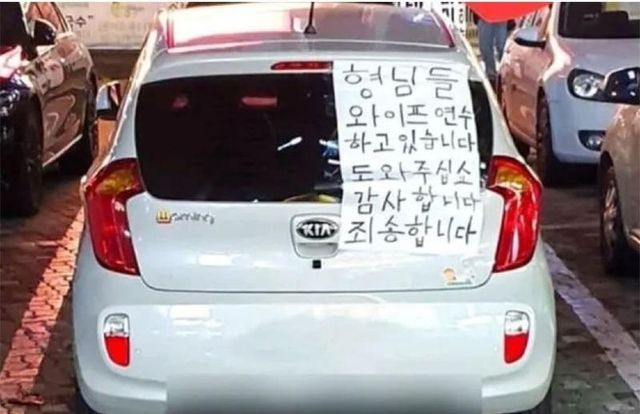 형님들
와이프 연수
하고 있습니다
도와주십쇼
감사 합니다
죄송합니다
morning
KIA